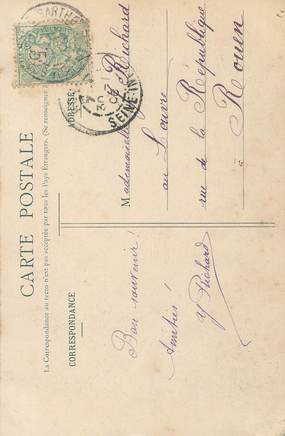 CARTE POSTALE
La Correspondance au recto n'est pas acceptée par tous les Pays Étrangers. (Se renseigner à
CORRESPONDANCE
ADRESSE
Bon souvenir!
Amitiés!
Y Richard
Mademoiselle Y Richard
au Louvre
rue de la République
Rouen
SARTHE
SEINE-IN